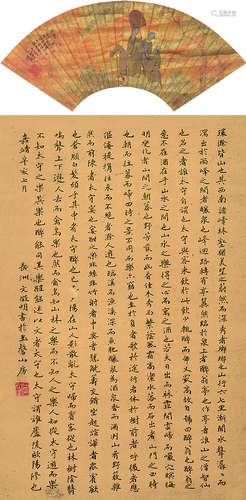 環滁皆山也其西南諸峰林壑尤美望之蔚然而深秀者瑯琊也山行六七里漸聞水聲潺潺而
瀉出於兩峰之間者釀泉也峰迴路轉有亭翼然臨於泉上者醉翁亭也作亭者誰山之僧智仙
也名之者誰太守自謂也太守與客來飲於此飲少輒醉而年又最高故自號曰醉翁也醉翁之
意不在酒在乎山水之間也山水之樂得之心而寓之酒也若夫日出而林霏開雲歸而巖穴暝晦
明變化者山間之朝暮也野芳發而幽香佳木秀而繁陰風霜高潔水落而石出者山間之四時
也朝而往暮而歸四時之景不同而樂亦無窮也至於負者歌於途行者休於樹前者呼後者應
傴僂提攜往來而不絕者滁人遊也臨溪而漁溪深而魚肥釀泉為酒泉香而酒洌山肴野蔌雜
然而前陳者太守宴也宴酣之樂非絲非竹射者中奕者勝觥籌交錯坐起而諠譁者眾賓歡
也蒼顏白髮頹乎其中者太守醉也已而夕陽在山人影散亂太守歸而賓客從也樹林陰翳
鳴聲上下遊人去而禽鳥樂也然而禽鳥知山林之樂而不知人之樂人知從太守遊而樂而
不知太守之樂其樂也醉能同其樂醒能述以文者太守也太守謂誰廬陵歐陽修也
嘉靖辛亥七月 長洲文徵明書於玉磬山房